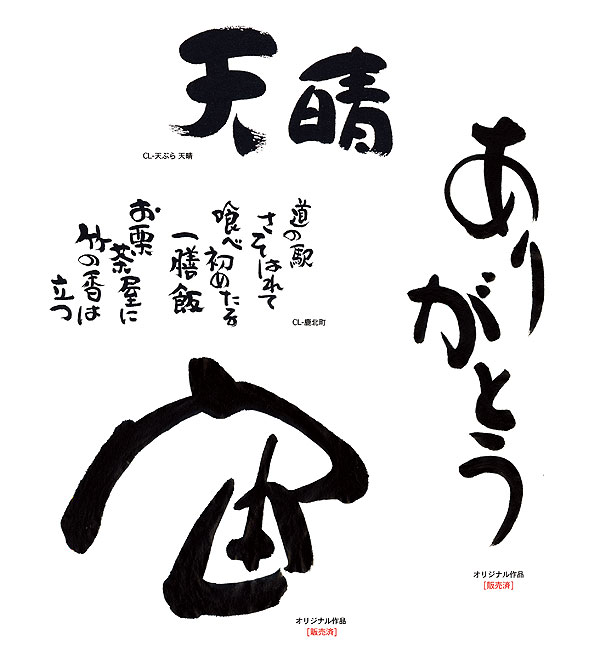 天晴
CL-天ぷら 天晴
ありがとう
道の駅
さそはれて
喰べ初めたる
一膳飯
お栗
茶屋に
竹の香は
立つ
CL-鹿北町
宙
オリジナル作品
[販売済]
オリジナル作品
[販売済]